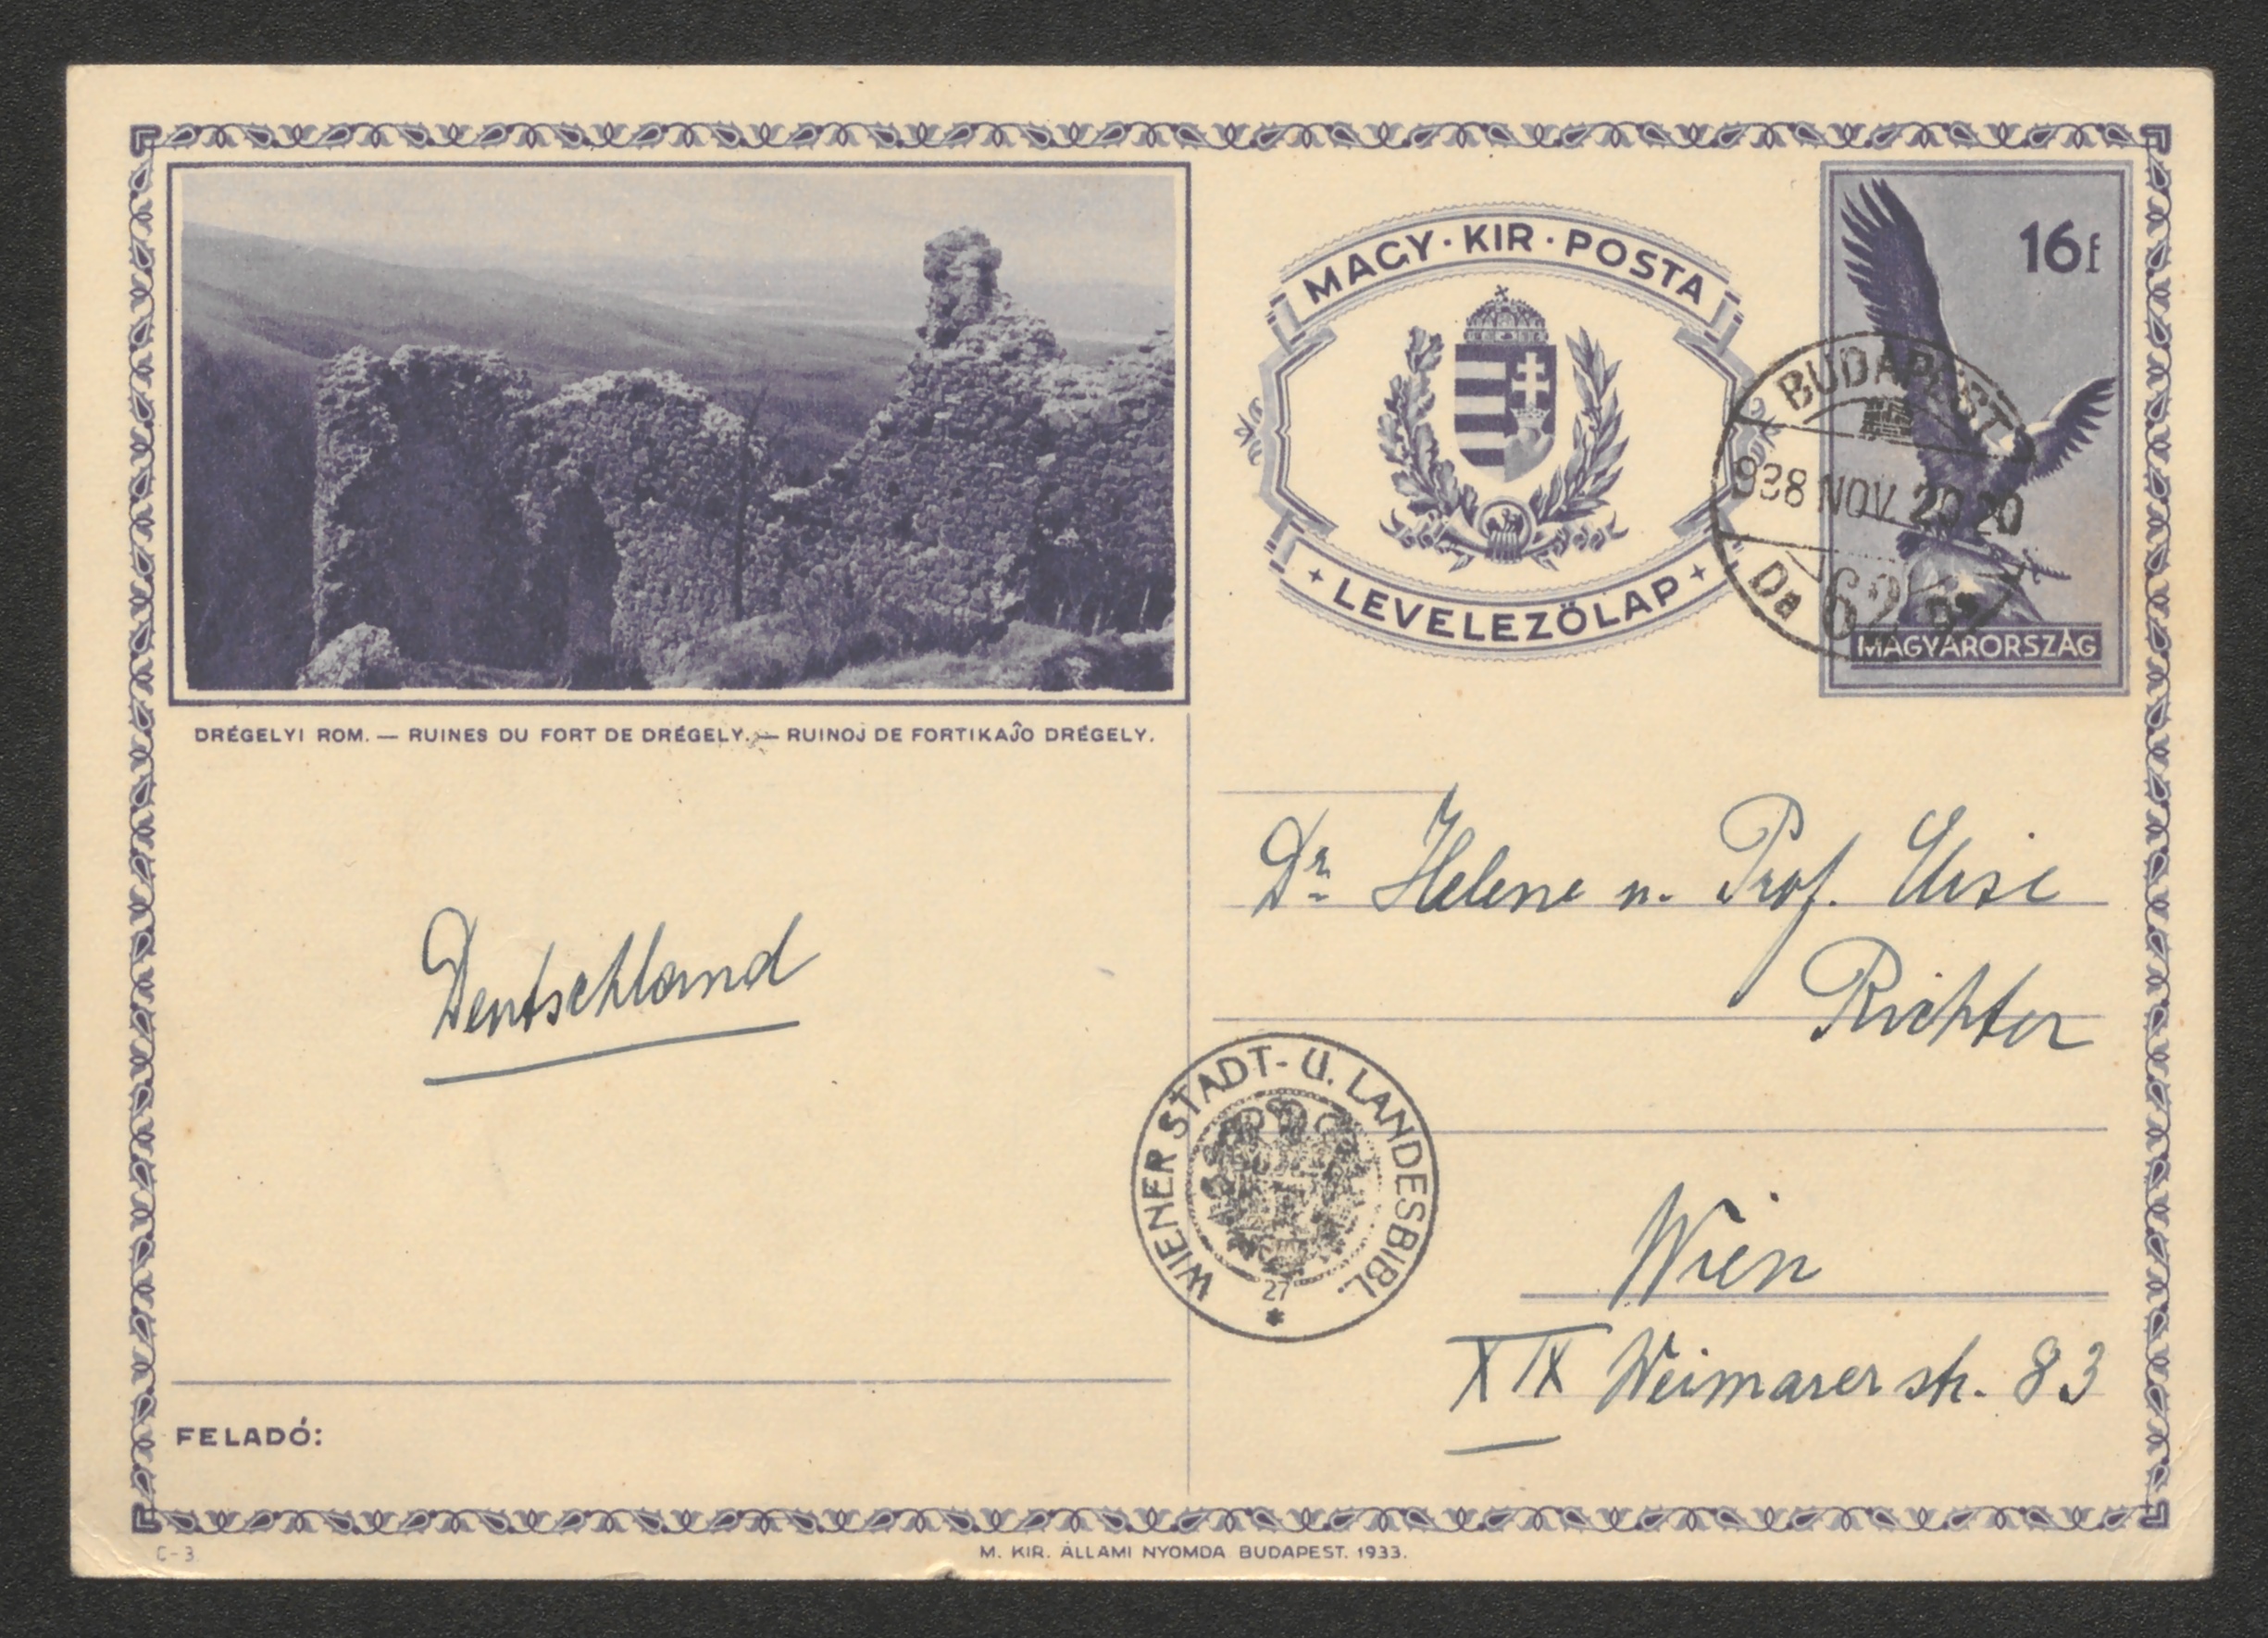 MAGY · KIR · POSTA
LEVELEZŐLAP
16 f
MAGYARORSZÁG
BUDAPEST
938 NOV. 20 20
62
DRÉGELYI ROM. — RUINES DU FORT DE DRÉGELY. — RUINOJ DE FORTIKAĴO DRÉGELY.
Deutschland
Dr. Helene u. Prof. Elise
Richter
WIENER STADT- U. LANDESBIBL.
27
Wien
XIX Weimarerstr. 83
FELADÓ:
C-3.
M. KIR. ÁLLAMI NYOMDA BUDAPEST. 1933.